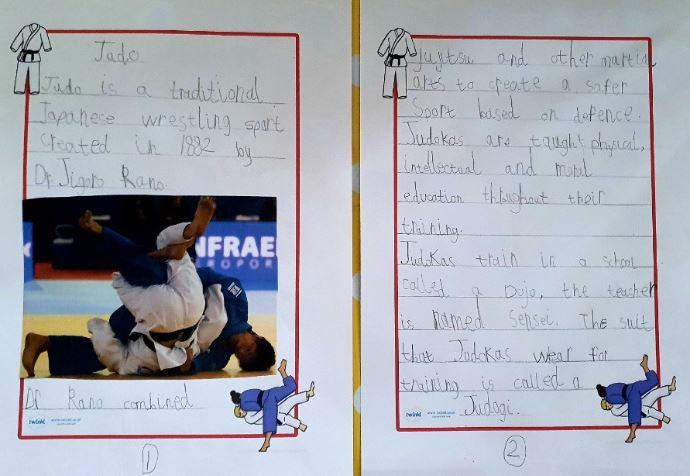 Judo
Judo is a traditional
Japanese wrestling sport
created in 1882 by
Dr Jigoro Kano.
NFRAE
ROPOR
Dr Kano combined
twinkl
1
jujitsu and other martial
arts to create a safer
Sport based on defence.
Judokas are taught physical,
intellectual and moral
education throughout their
training.
JudoKas train in a school
called a Dojo, the teacher
is named Sensei. The suit
that Judokas wear for
training is called a
Judogi.
twinkl
2